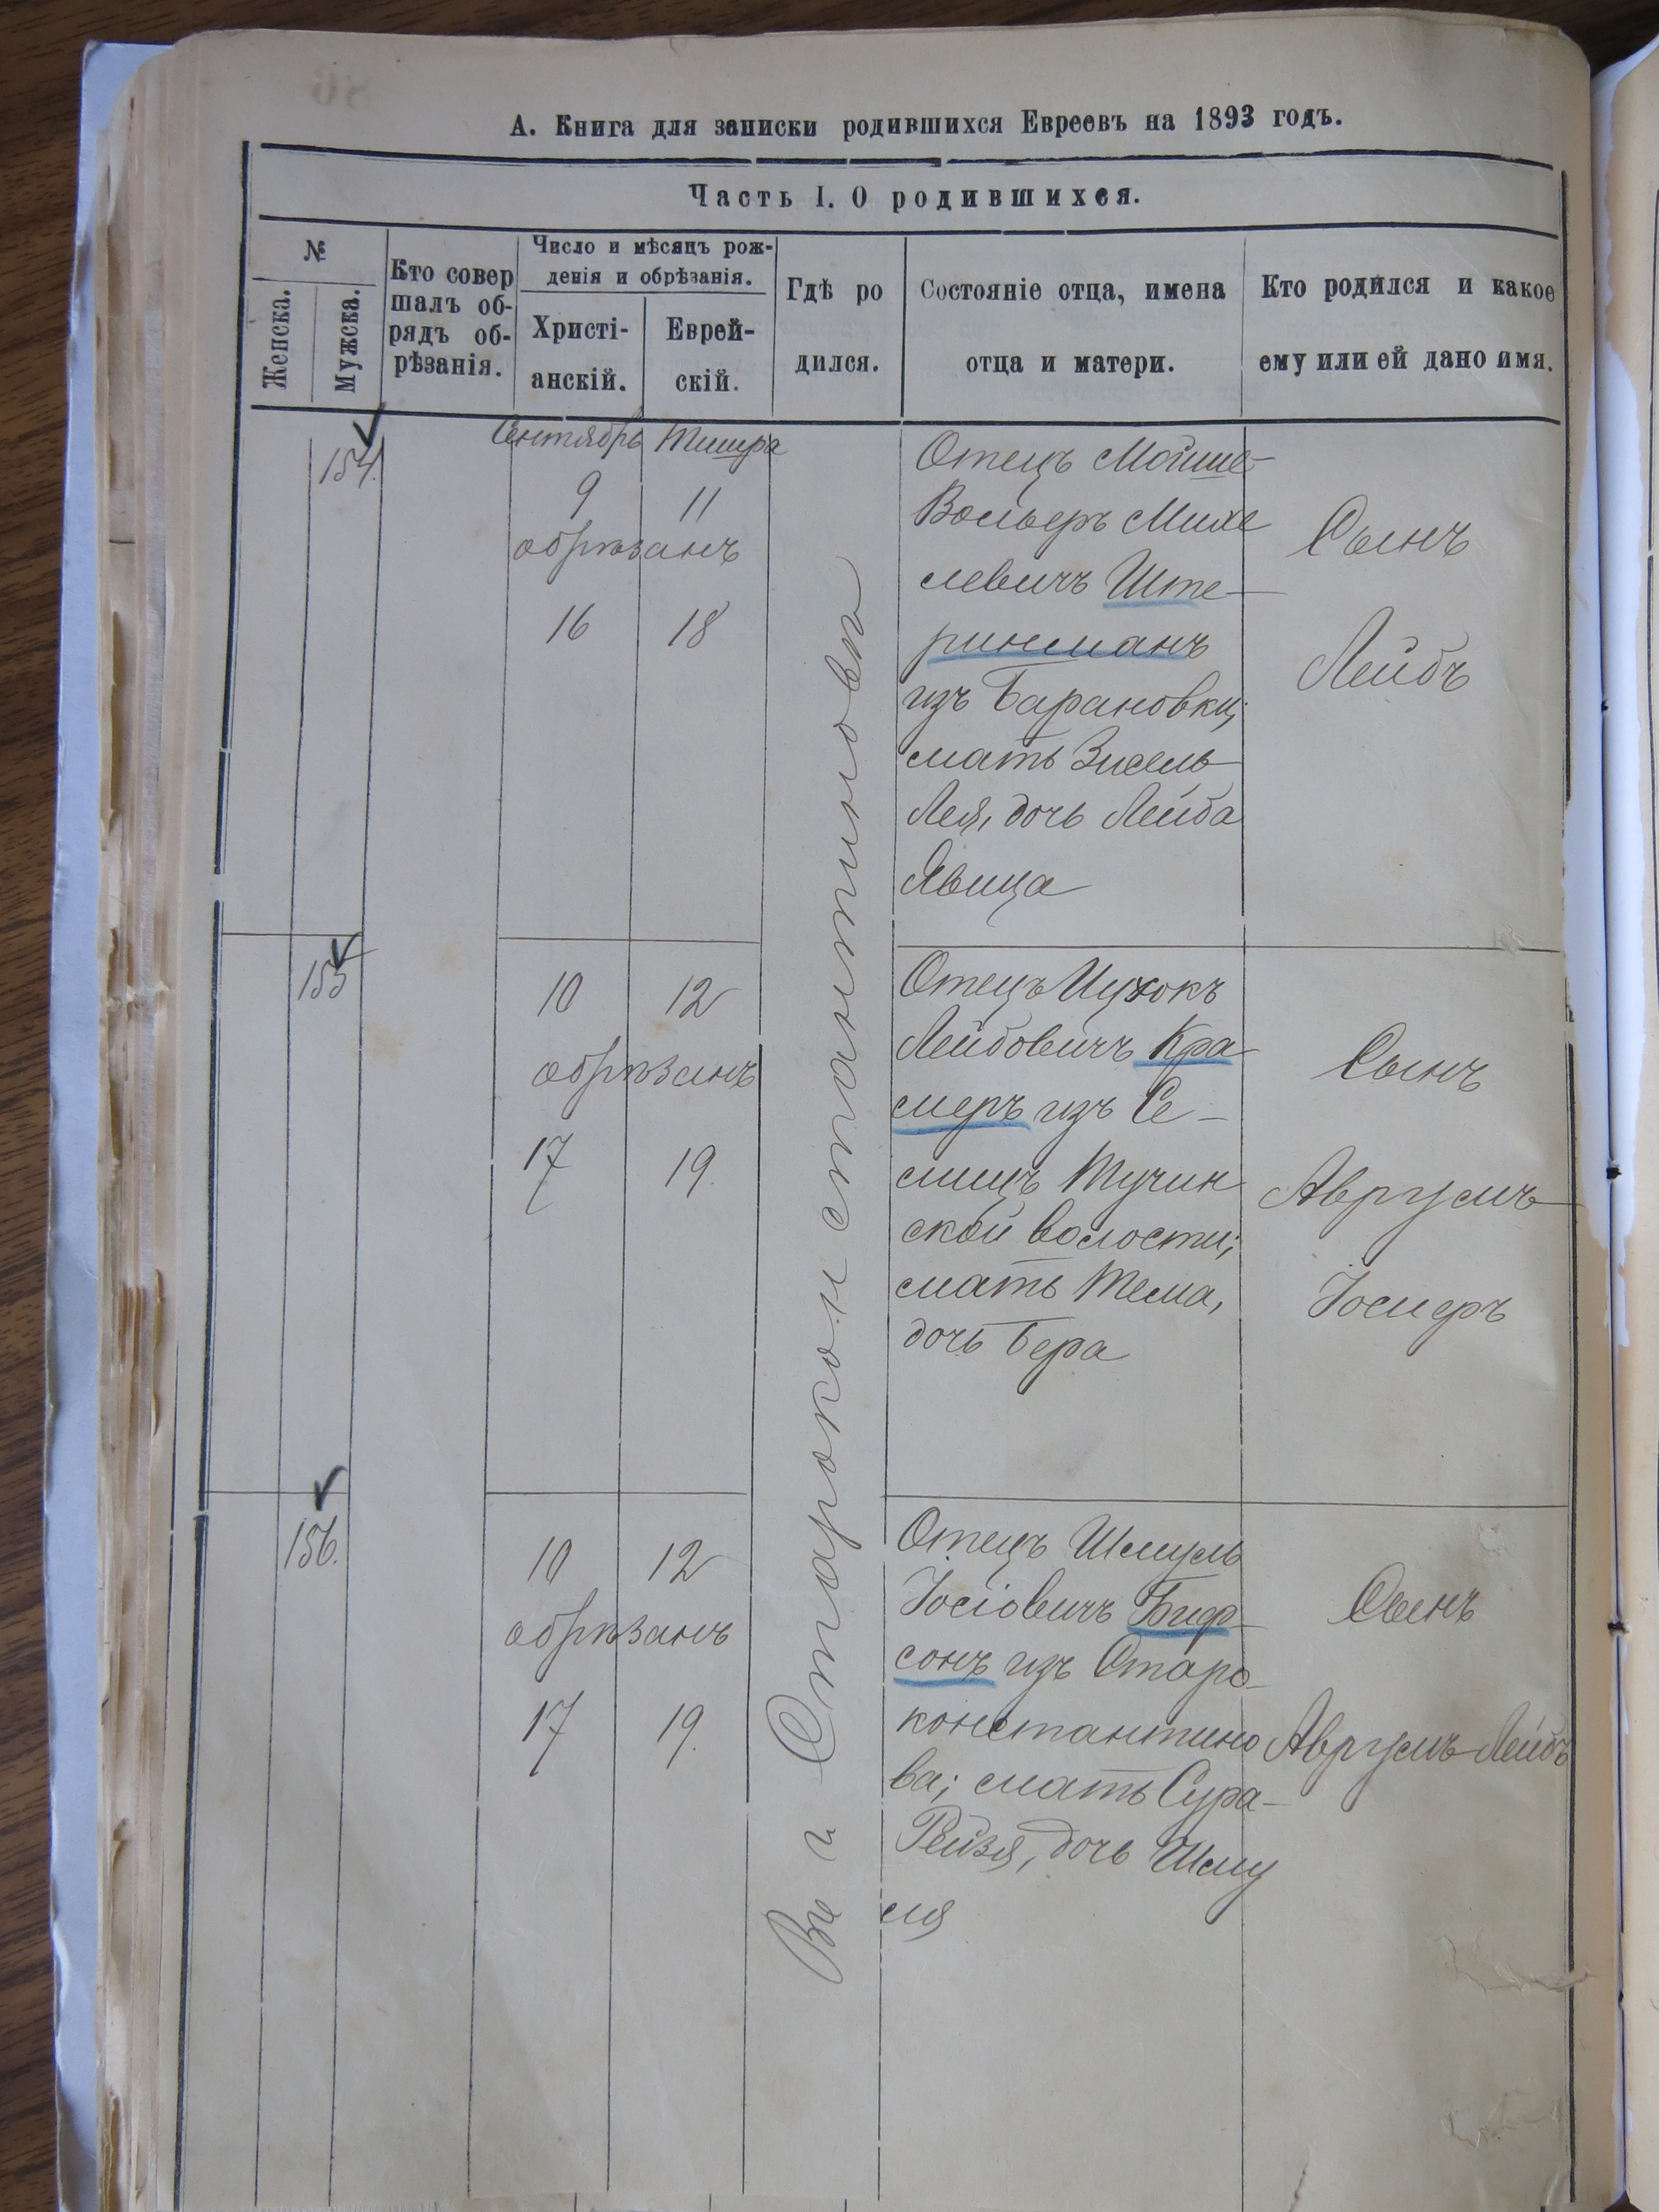 А. Книга для записки родившихся Евреевъ на 1893 годъ.
Часть I. О родившихся.
№
Женска.
Мужска.
Кто совер
шалъ об-
рядъ об-
рѣзанія.
Число и мѣсяцъ рож-
денія и обрѣзанія.
Христі-
анскій.
Еврей-
скій.
Гдѣ ро
дился.
Состояніе отца, имена
отца и матери.
Кто родился и какое
ему или ей дано имя.
Сентябрь Тишра
154.
9 11
обрѣзанъ
16 18
Отецъ Мойше-
Вольфъ Михе
левичъ Ште-
ринманъ
изъ Барановки;
мать Зисель-
Лея, дочь Лейба
Явица
Сынъ
Лейбъ
Въ г. Староконстантиновѣ
155
10 12
обрѣзанъ
17 19.
Отецъ Ицхокъ
Лейбовичъ Кра
меръ изъ Се-
лищъ Тучин
ской волости;
мать Тема,
дочь Бера
Сынъ
Аврумъ
Іосифъ
156.
10 12
обрѣзанъ
17 19.
Отецъ Шмуль
Іосіовичъ Биф-
сонъ изъ Старо-
константино
ва; мать Сура-
Рейзя, дочь Шму
ля
Сынъ
Аврумъ-Лейбъ